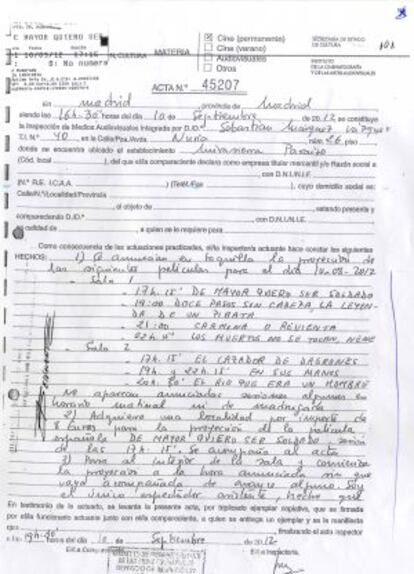 E MAYOR QUIERO SE
Cine (permanente)
Cine (verano)
Audiovisuales
Otros
MATERIA
SECRETARIA DE ESTADO
DE CULTURA
INSTITUTO
DE LA CINEMATOGRAFIA
Y DE LAS ARTES AUDIOVISUALES
101
ACTA N.º 45207
En madrid provincia de Madrid
siendo las 16h.30' horas del día 10 de Septiembre de 20.12 se constituye
la Inspección de Medios Audiovisuales integrada por D.D.ª Sebastian
T.I. N.º 40 en la Calle/Pza./Avda. Nuria núm. 26
donde se encuentra ubicado el establecimiento
(Cód. local ), del que el/la compareciente declara como empresa titular mercantil y/o Razón social a
con D.N.I./N.I.F.
(N.º R.E. I.C.A.A. ) (Teléf./Fax ), cuyo domicilio social es:
Calle/N.º/Localidad/Provincia
, al objeto de , estando presente y
compareciendo D./D.ª , con D.N.I./N.I.E.
en calidad de , a quien se le requiere para
Como consecuencia de las actuaciones practicadas, el/la inspector/a actuante hace constar los siguientes
HECHOS: 1) Se anuncian en taquilla la proyección de
las siguientes peliculas para el día 10-09-2012
- Sala 1
- 17h.15' DE MAYOR QUIERO SER SOLDADO
- 19:00 DOCE PASOS SIN CABEZA, LA LEYEN-
DA DE UN PIRATA
- 21:00 CARMINA O REVIENTA
LOS MUERTOS NO SE TOCAN, NENE
Sala 2
- 17h.15' EL CAZADOR DE DRAGONES
19h y 22h.15' EN SUS MANOS
20h.30' EL RIO QUE ERA UN HOMBRE
No aparecen anunciadas sesiones algunas en
horario matinal ni de madrugada
2) Adquiero una localidad por importe de
8 Euros para la proyección de la pelicula
española DE MAYOR QUIERO SER SOLDADO sesión
de las 17h.15'. Se acompaña al acta
3) Paso al interior de la sala y comienza
la proyección a la hora anunciada sin que
vaya acompañada de avance alguno. Soy
el único espectador asistente, hecho que
En testimonio de lo actuado, se levanta la presente acta, por triplicado ejemplar copiativo, que es firmada
por el/la funcionario actuante junto con el/la compareciente, a quien se entrega un ejemplar y se le manifiesta
que , finalizando el acto inspector
a las 19h.30' del día 10 de Septiembre de 20.12
El/La Compareciente El/La Inspector/a,